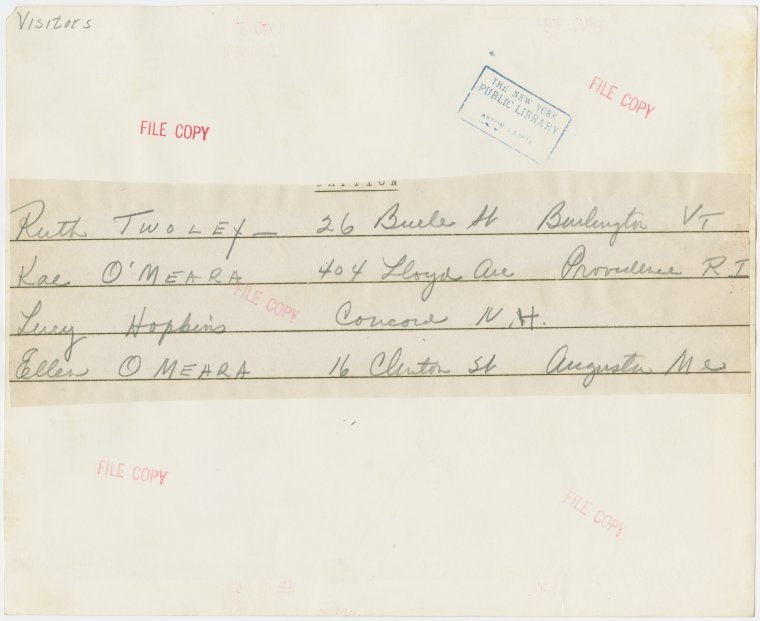 Visitors
THE NEW YORK
PUBLIC LIBRARY
FILE COPY
FILE COPY
CAPTION
Ruth TWOLEY — 26 Buele St Burlington VT
Kae O'MEARA 404 Lloyd Ave Providence R I
FILE COPY
Lucy Hopkins Concord N.H.
Ellen O MEARA 16 Clinton St Augusta Me
FILE COPY
FILE COPY